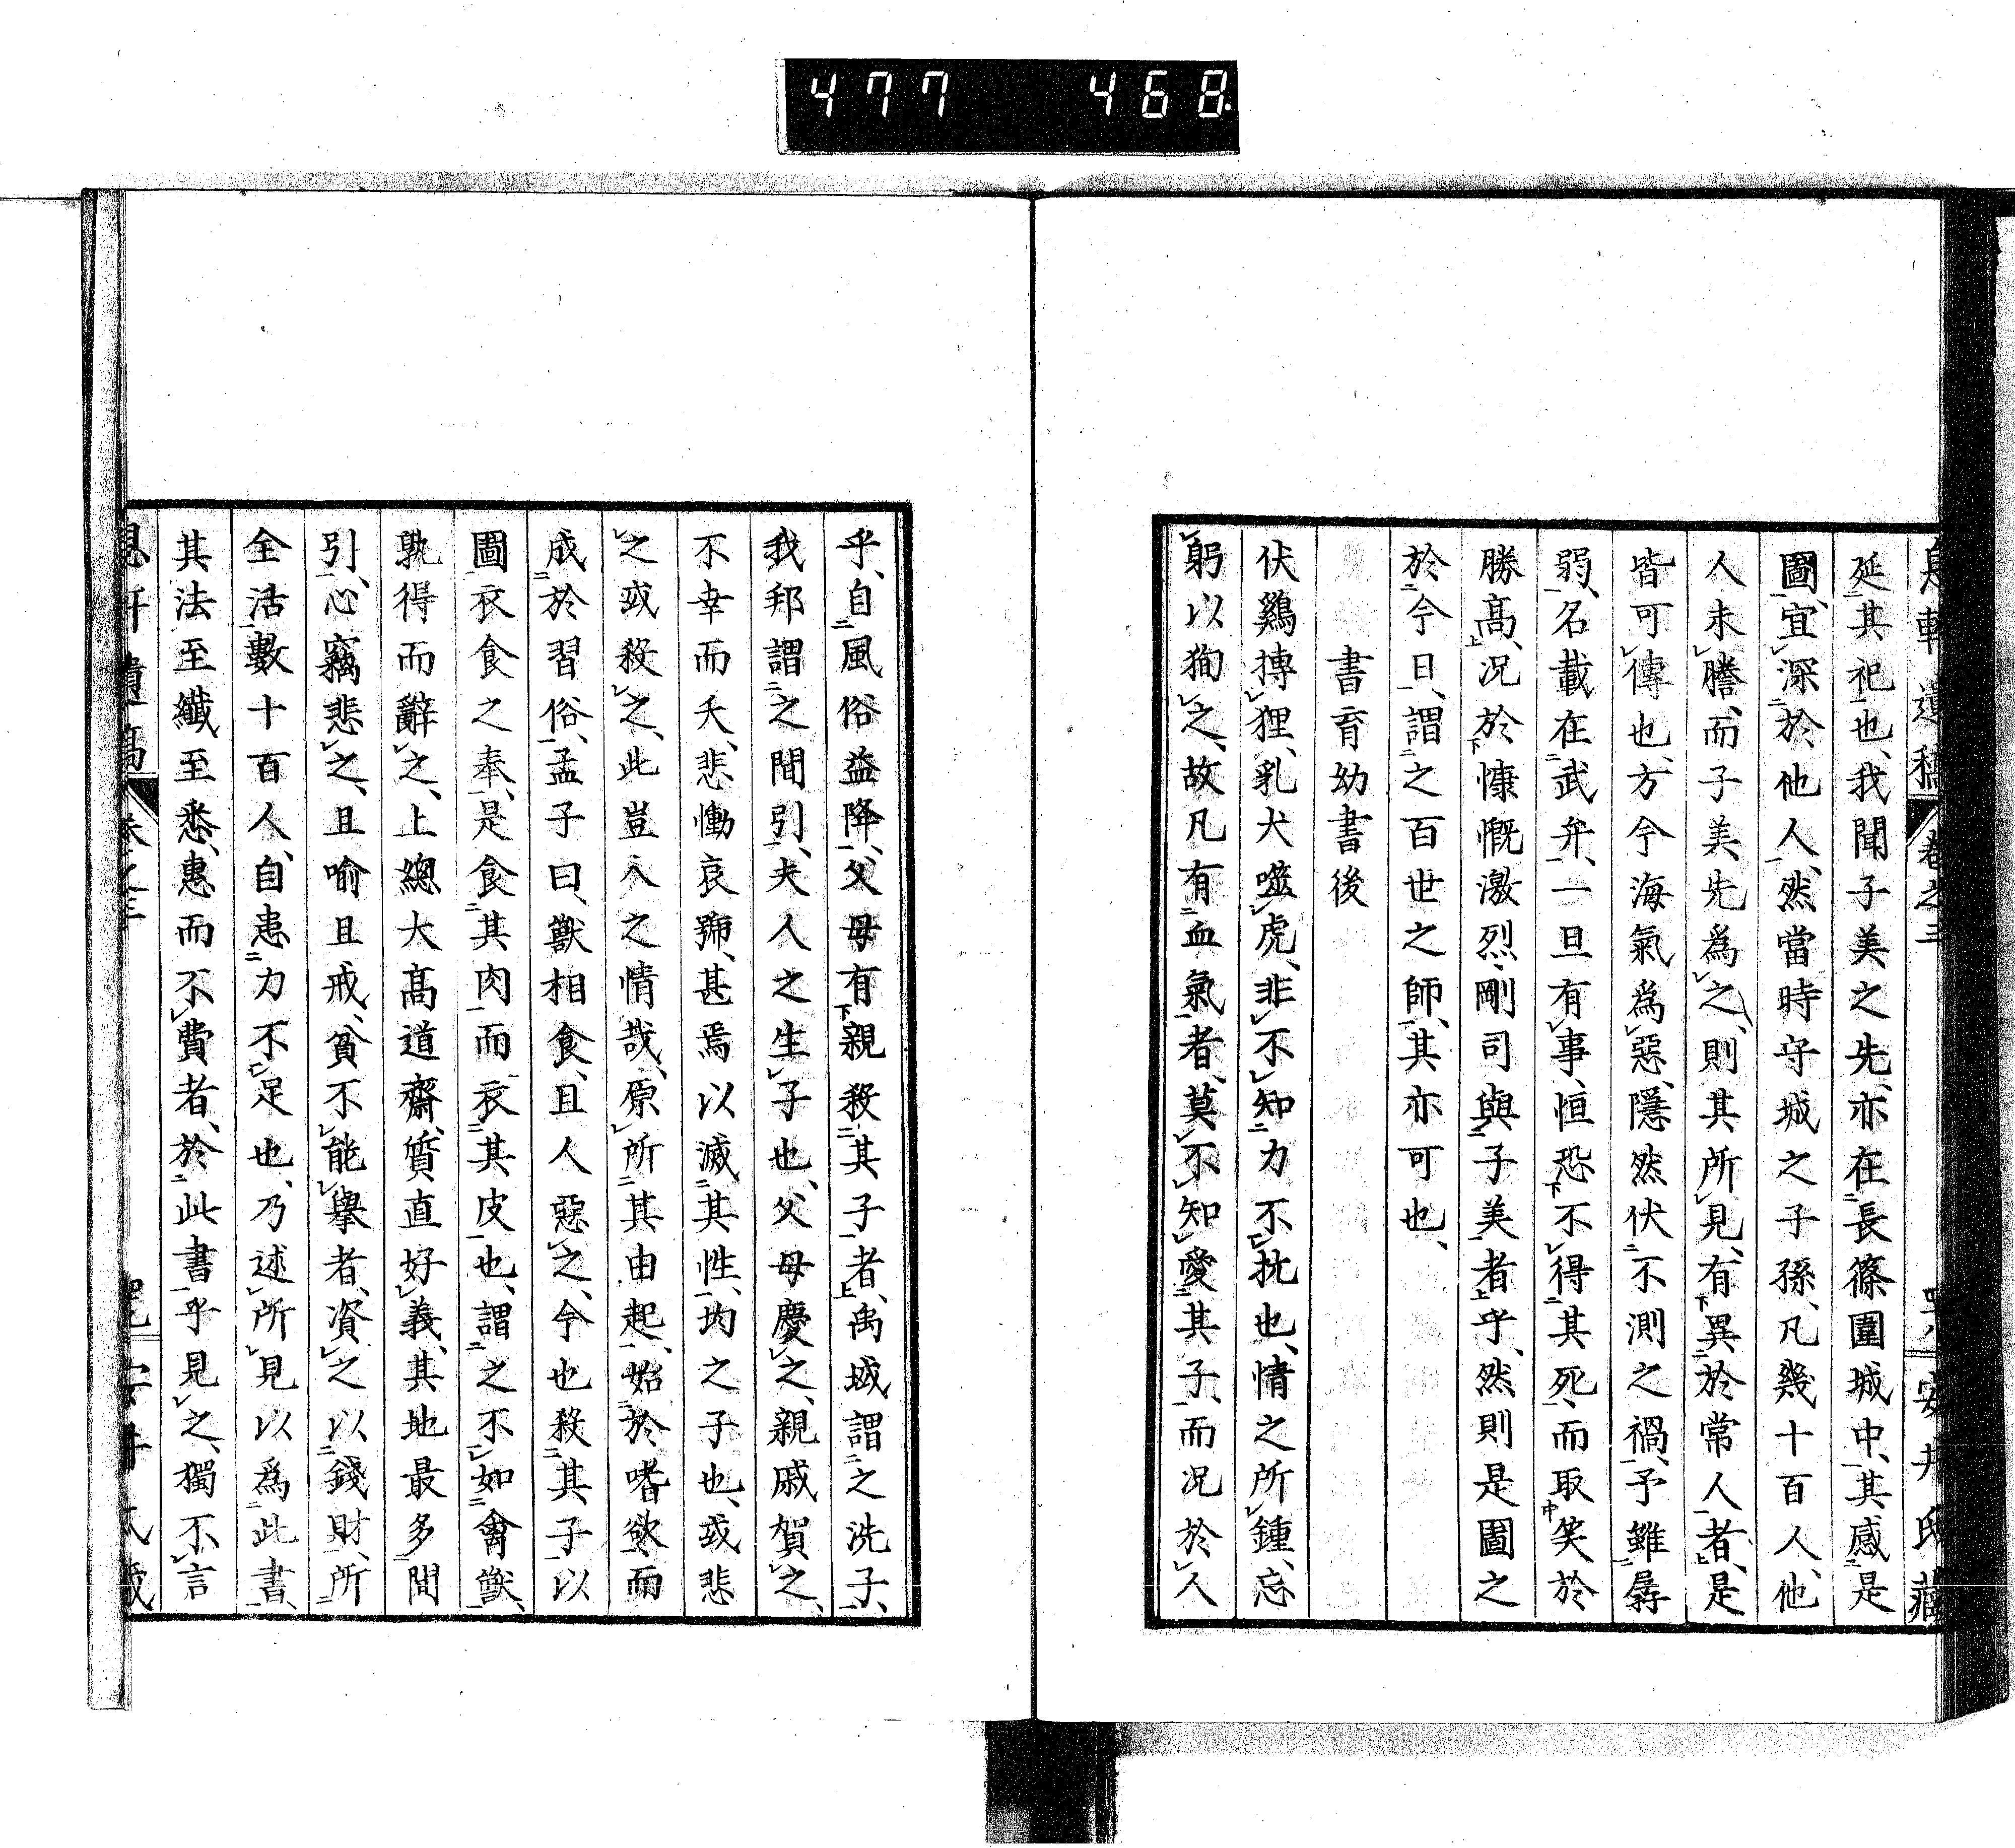 477 468
息軒遺稿 卷之三 安井氏藏
延其祀也、我聞子美之先、亦在長篠圍城中、其感是
圖、宜深於他人、然當時守城之子孫、凡幾十百人、他
人未謄、而子美先爲之、則其所見、有異於常人者、是
皆可傳也、方今海氣爲惡、隱然伏不測之禍、予雖孱
弱、名載在武弁、一旦有事、恒恐不得其死、而取笑於
勝高、況於慷慨激烈、剛司與子美者乎、然則是圖之
於今日、謂之百世之師、其亦可也、
書育幼書後
伏鷄搏狸、乳犬噬虎、非不知力不抗也、情之所鍾、忘
躬以狥之、故凡有血氣者、莫不知愛其子、而況於人
乎、自風俗益降、父母有親殺其子者、禹域謂之洗子、
我邦謂之間引、夫人之生子也、父母慶之、親戚賀之、
不幸而夭、悲慟哀號、甚焉以滅其性、均之子也、或悲
之或殺之、此豈人之情哉、原所其由起、始於嗜欲、而
成於習俗、孟子曰、獸相食、且人惡之、今也殺其子以
圖衣食之奉、是食其肉而衣其皮也、謂之不如禽獸、
孰得而辭之、上總大高道齋、質直好義、其地最多間
引、心竊悲之、且喻且戒、貧不能擧者、資之以錢財、所
全活數十百人、自患力不足也、乃述所見以爲此書、
其法至纖至悉、惠而不費者、於此書乎見之、獨不言
息軒遺稿 卷之三 安井氏藏